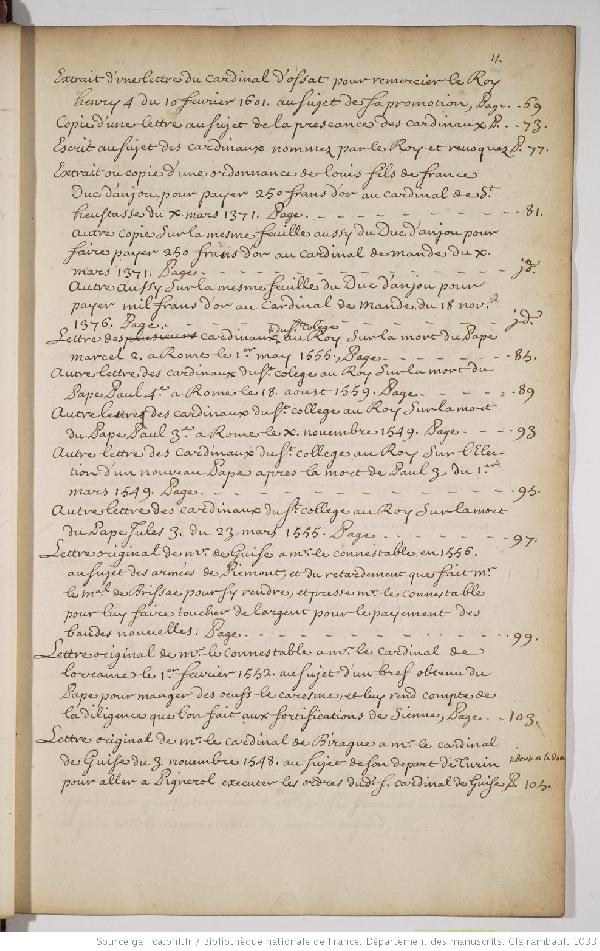 4.
Extrait d'vne lettre du cardinal d'ossat pour remercier le Roy
henry 4 du 10 feurier 1601. au sujet de sa promotion, Page. - 69
Copie d'une lettre au sujet de la preseance des cardinaux P. - - 73.
Escrit au sujet des cardinaux nommez par le Roy et reuoquez P. 77.
Extrait ou copie d'une ordonnance de louis fils de france
Duc d'anjou pour payer 250 frans d'or au cardinal de St.
heustasse du x. mars 1371. Page. - - - - - - - - 81.
Autre copie sur la mesme feuille aussy du Duc d'anjou pour
faire payer 250 frans d'or au cardinal de mande du x.
mars 1371. Page - - - - - - - - - - jd.
Autre aussy sur la mesme feuille du Duc d'anjou pour
payer mil frans d'or au Cardinal de Mande, du 18 nov.
1376. Page. - - - - - - - - - - jd.
du St. college
Lettre des plusieurs cardinaux au Roy sur la mort du Pape
marcel 2. a Rome le 1er may 1555, Page - - - - - 85.
Autre lettre des cardinaux du St. colege au Roy sur la mort du
Pape Paul 4e a Rome le 18. aoust 1559. Page. - - - - 89
Autre lettre des cardinaux du St. college au Roy sur la mort
du Pape Paul 3e. a Rome le x. nouembre 1549. Page - - - 93
Autre lettre des Cardinaux du St. college au Roy sur l'élec-
tion d'un nouueau Pape apres la mort de Paul 3. du 1er
mars 1549. Page - - - - - - - - - - 95.
Autre lettre des cardinaux du St. college au Roy sur la mort
du Pape Jules 3. du 23 mars 1555. Page - - - - - 97.
Lettre original de mr. de Guise a mr. le connestable en 1556.
au sujet des armées de Piemont, et du retardement que fait mr.
le mal. de Brissac pour s'y rendre, et presse mr. le connestable
pour luy faire toucher de l'argent pour le payement des
bandes nouuelles. Page. - - - - - - - - - 99.
Lettre original de mr. le connestable a mr. le cardinal de
lorraine le 1er feurier 1552. au sujet d'un bref obtenu du
Pape pour manger des oeufs le caresme, et luy rend compte de
la diligence que l'on fait aux fortifications de Sienne, Page. - - 103.
Lettre original de mr. le cardinal de Birague a mr. le cardinal
de Guise du 3 nouembre 1548. au sujet de son depart de Turin
pour aller a Pignerol executer les ordres dud. s. cardinal de Guise P. 105.
Source gallica.bnf.fr / Bibliothèque nationale de France. Département des manuscrits. Clairambault 1033